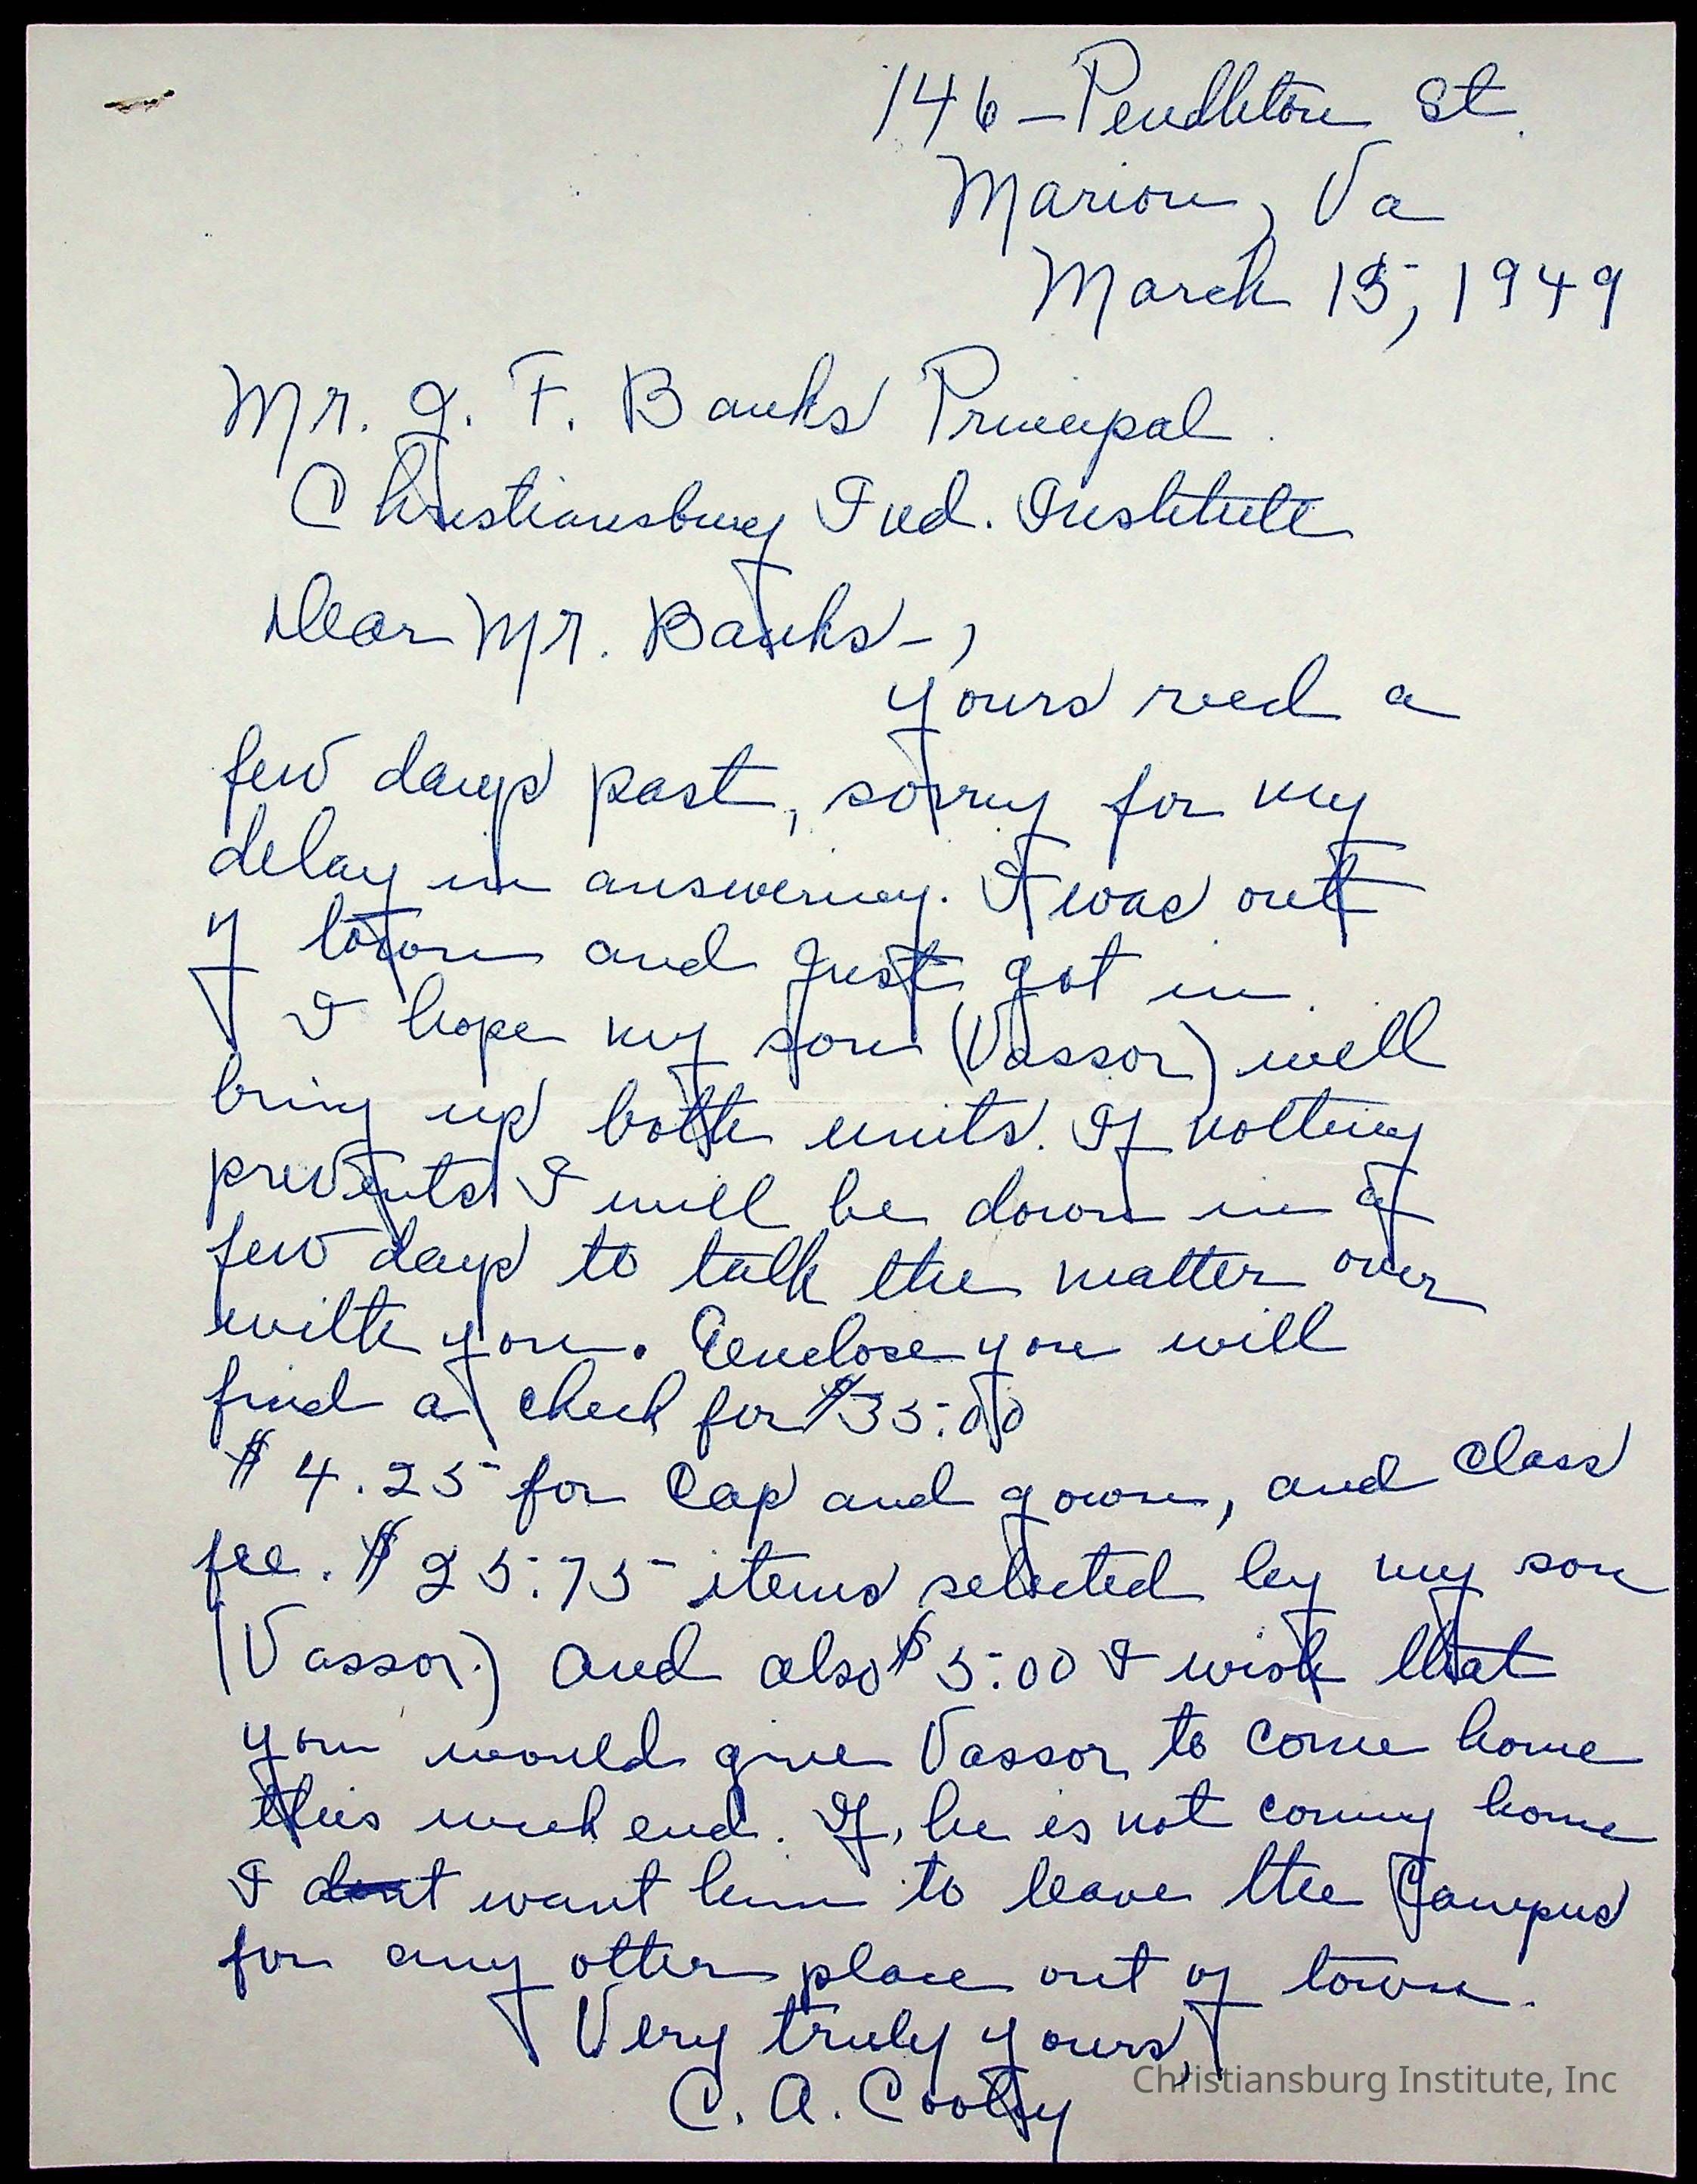 146 - Pendleton St.
Marion, Va
March 15, 1949
Mr. J. F. Banks Principal
Christiansburg Ind. Institute
Dear Mr. Banks-,
yours recd a
few days past, sorry for my
delay in answering. I was out
of town and just got in.
I hope my son (Vassor) will
bring up both units. If nothing
prevents I will be down in a
few days to talk the matter over
with you. Enclose you will
find a check for $35.00
$4.25 for Cap and gown, and class
fee. $25.75 items selected by my son
(Vassor.) and also $5.00 I wish that
you would give Vassor to come home
this week end. If, he is not coming home
I dont want him to leave the Campus
for any other place out of town.
Very truly yours,
C. A.
Christiansburg Institute, Inc